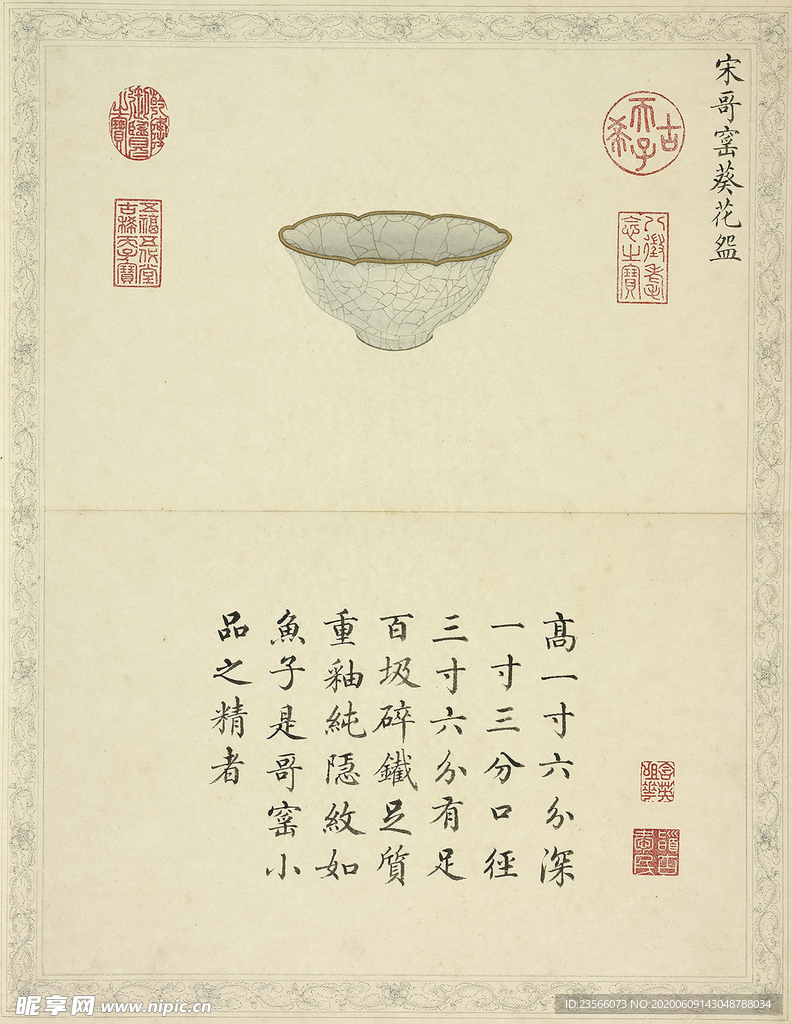 宋哥窰葵花盌
古希天子
八徵耄念之寶
乾隆御覽之寶
五福五代堂古稀天子寶
高一寸六分深
一寸三分口徑
三寸六分有足
百圾碎鐵足質
重釉純隱紋如
魚子是哥窰小
品之精者
含英咀華
昵享网 www.nipic.cn
ID:23566073 NO:20200609143048788034